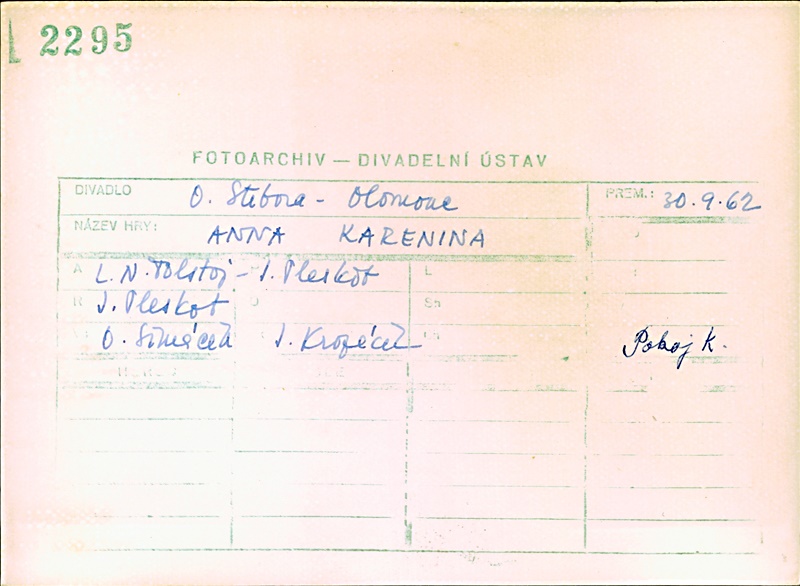 2295
FOTOARCHIV — DIVADELNÍ ÚSTAV
DIVADLO O. Stibora - Olomouc PREM.: 30.9.62
NÁZEV HRY: ANNA KARENINA
A L.N. Tolstoj - J. Pleskot L
R J. Pleskot O Sb
O. Šimáček J. Kropáček Pokoj K.